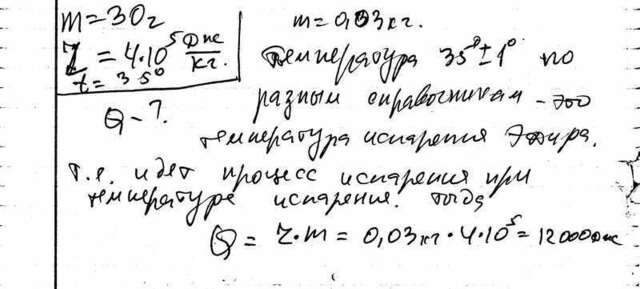 m = 30 г
Z = 4·10⁵ Дж/кг.
t = 35°
Q - ?
m = 0,03 кг.
Температура 35° ± 1° по
разным справочникам - это
температура испарения Эфира.
т.е. идет процесс испарения при
температуре испарения. тогда
Q = Z·m = 0,03 кг · 4·10⁵ = 12000 Дж